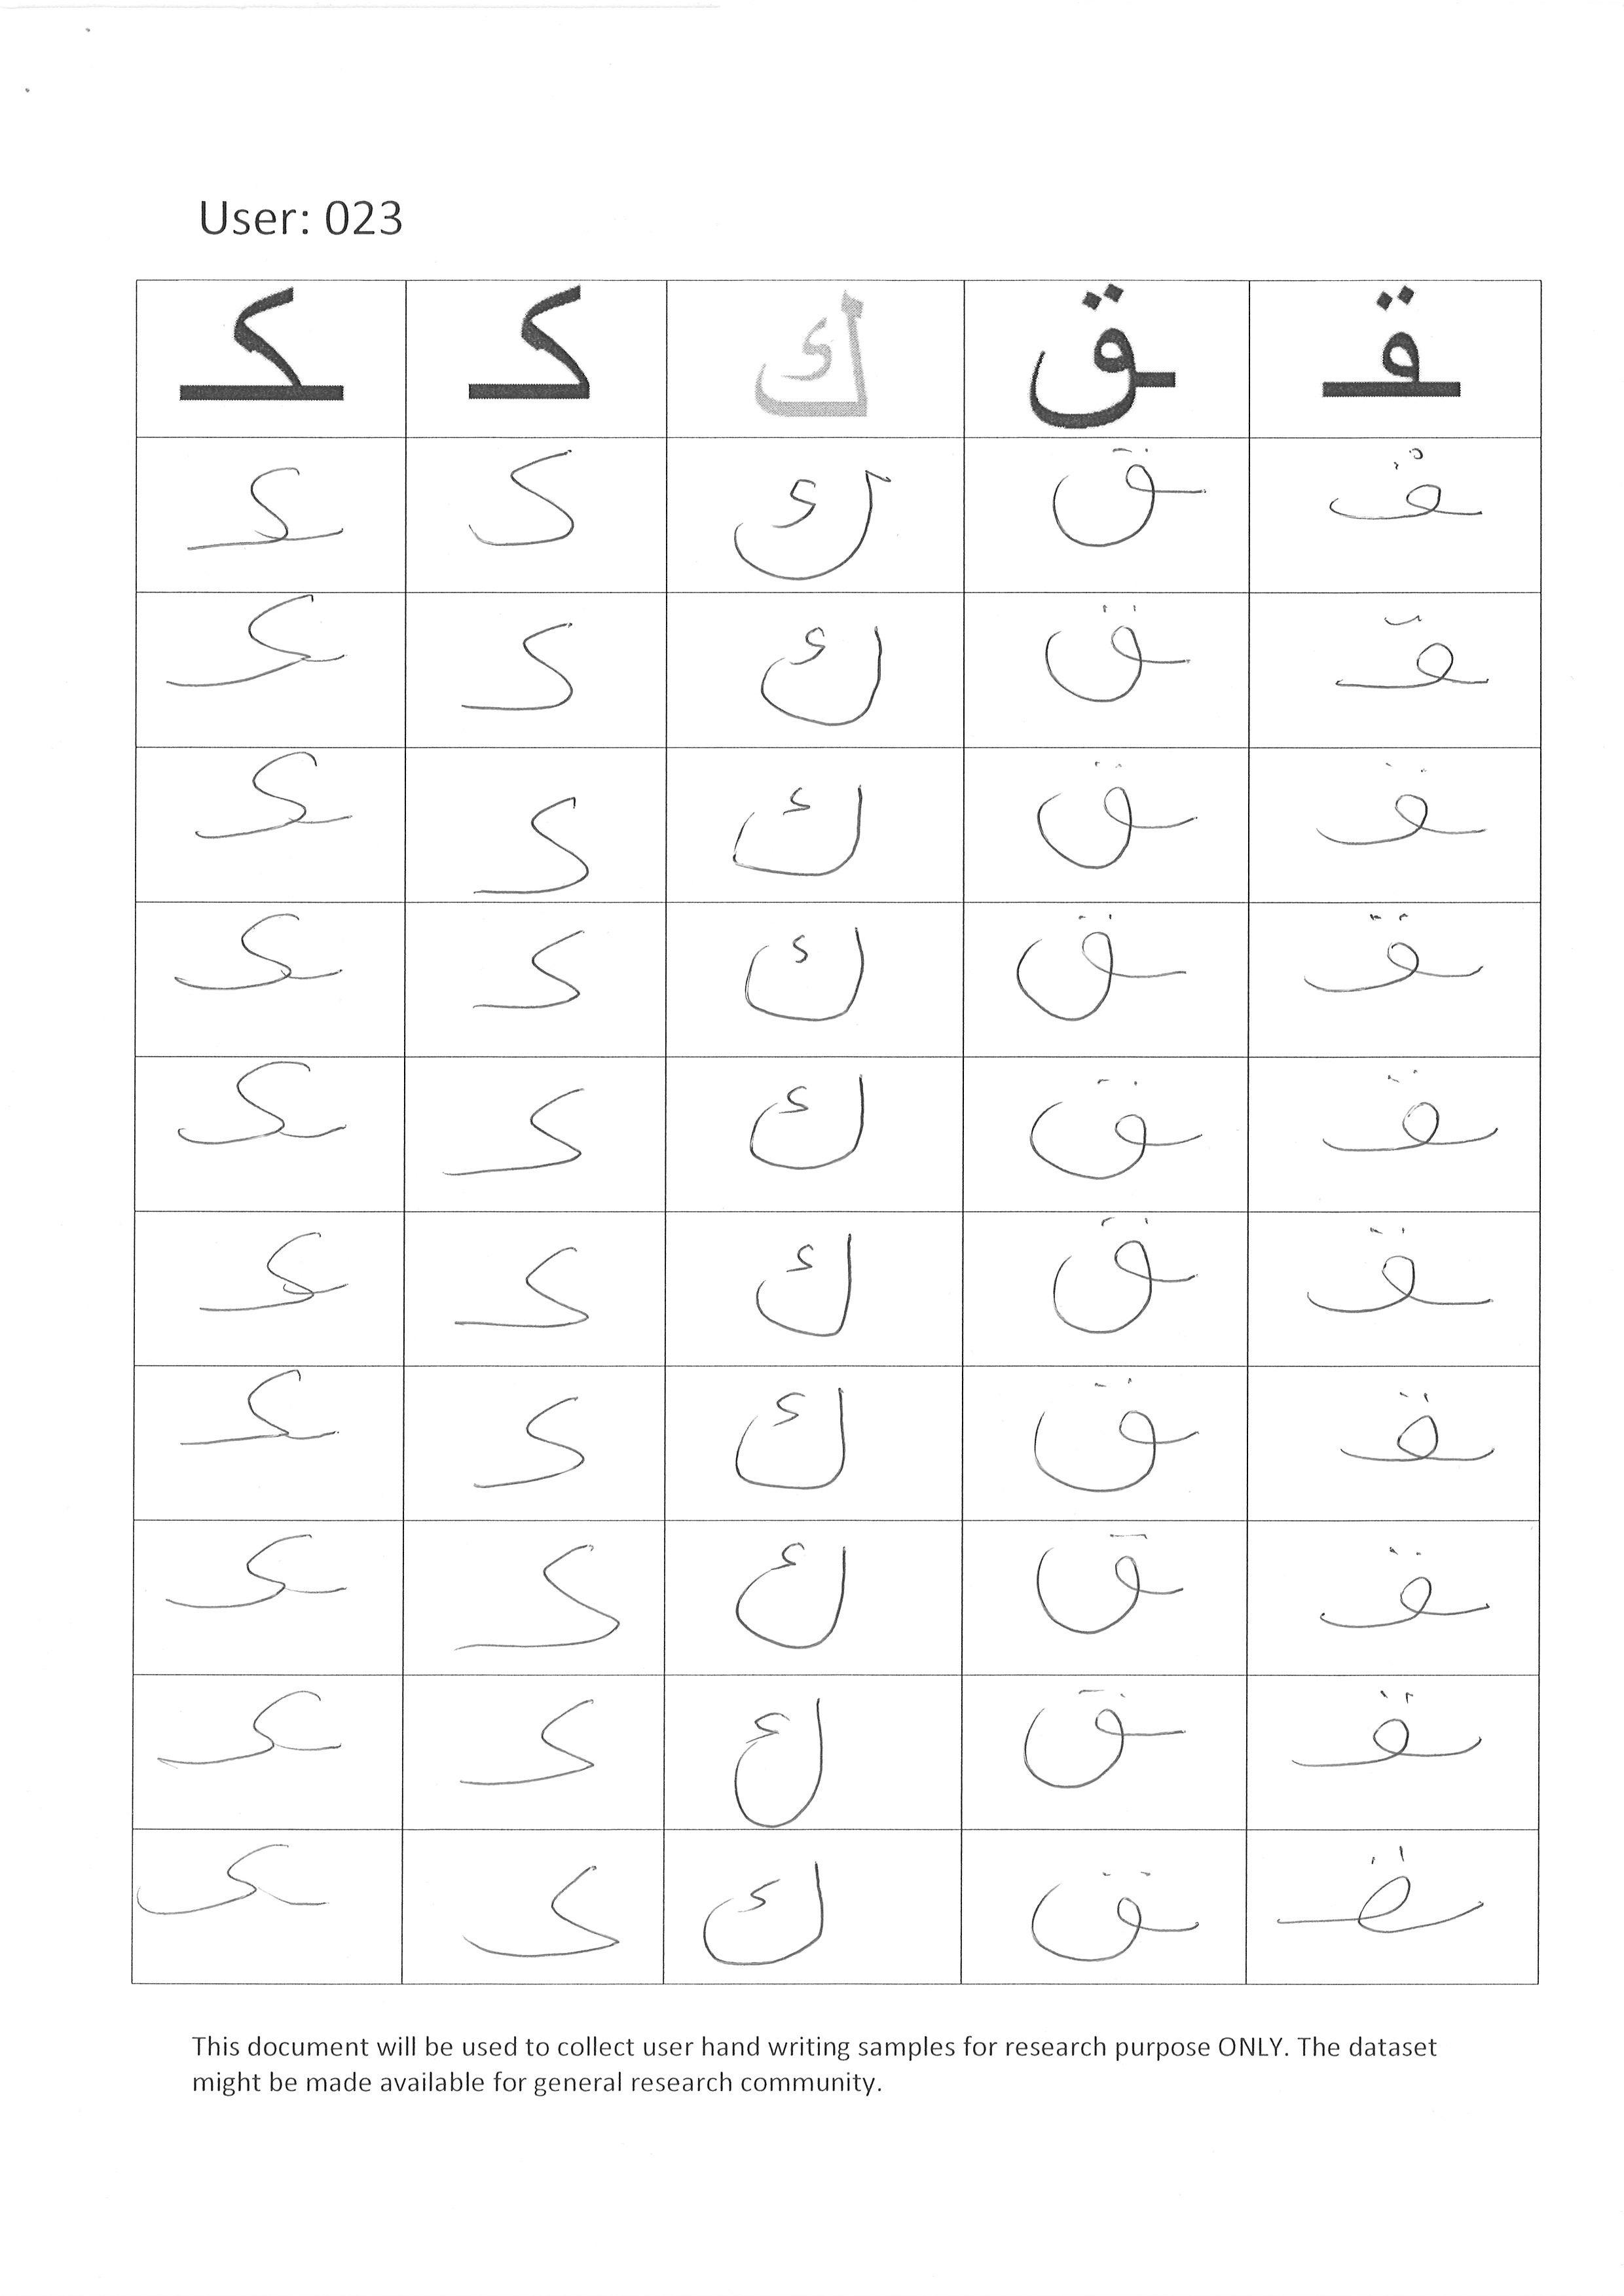 User: 023
ـقـ ـق ك كـ ـكـ
ـقـ ـق ك كـ ـكـ
ـقـ ـق ك كـ ـكـ
ـقـ ـق ك كـ ـكـ
ـقـ ـق ك كـ ـكـ
ـقـ ـق ك كـ ـكـ
ـقـ ـق ك كـ ـكـ
ـقـ ـق ك كـ ـكـ
ـقـ ـق ك كـ ـكـ
ـقـ ـق ك كـ ـكـ
ـقـ ـق ك كـ ـكـ
This document will be used to collect user hand writing samples for research purpose ONLY. The dataset
might be made available for general research community.